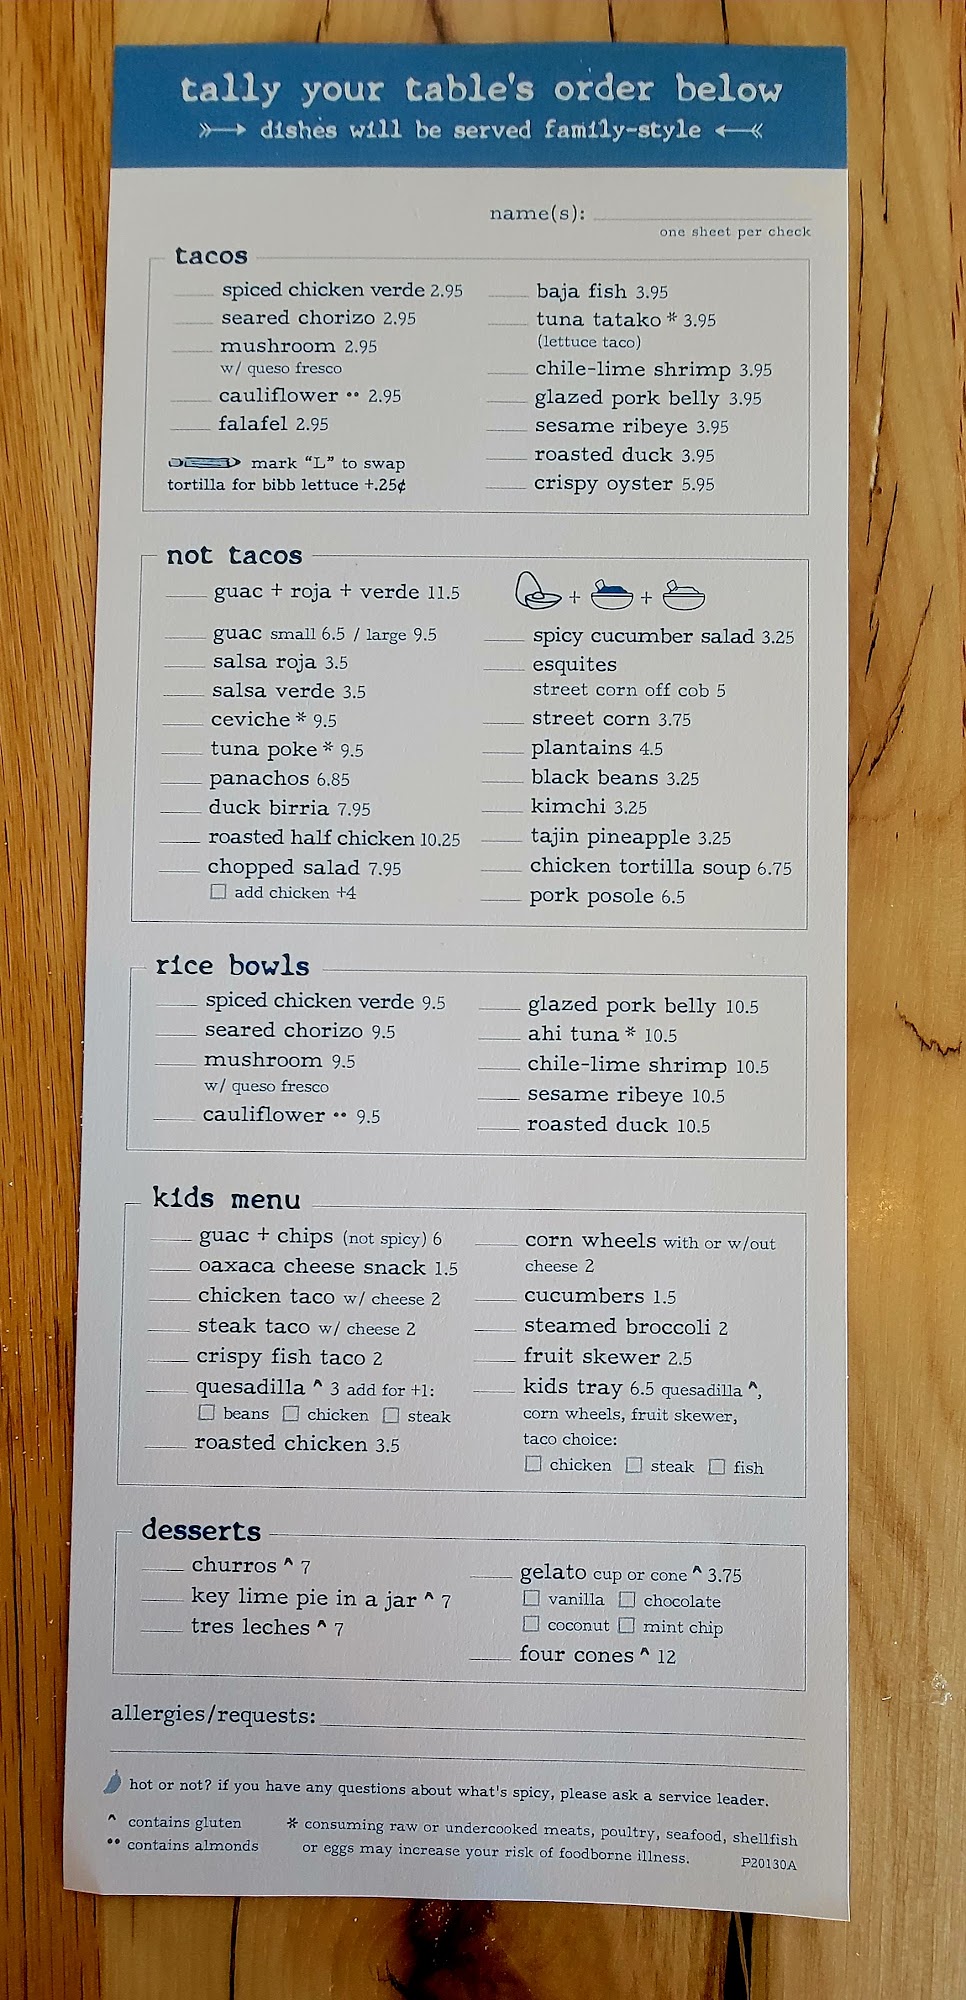 tally your table's order below
dishes will be served family-style
name(s):
one sheet per check
tacos
spiced chicken verde 2.95
seared chorizo 2.95
mushroom 2.95
w/ queso fresco
cauliflower •• 2.95
falafel 2.95
mark “L” to swap
tortilla for bibb lettuce +.25¢
baja fish 3.95
tuna tatako * 3.95
(lettuce taco)
chile-lime shrimp 3.95
glazed pork belly 3.95
sesame ribeye 3.95
roasted duck 3.95
crispy oyster 5.95
not tacos
guac + roja + verde 11.5
+ +
guac small 6.5 / large 9.5
salsa roja 3.5
salsa verde 3.5
ceviche * 9.5
tuna poke * 9.5
panachos 6.85
duck birria 7.95
roasted half chicken 10.25
chopped salad 7.95
add chicken +4
spicy cucumber salad 3.25
esquites
street corn off cob 5
street corn 3.75
plantains 4.5
black beans 3.25
kimchi 3.25
tajin pineapple 3.25
chicken tortilla soup 6.75
pork posole 6.5
rice bowls
spiced chicken verde 9.5
seared chorizo 9.5
mushroom 9.5
w/ queso fresco
cauliflower •• 9.5
glazed pork belly 10.5
ahi tuna * 10.5
chile-lime shrimp 10.5
sesame ribeye 10.5
roasted duck 10.5
kids menu
guac + chips (not spicy) 6
oaxaca cheese snack 1.5
chicken taco w/ cheese 2
steak taco w/ cheese 2
crispy fish taco 2
quesadilla ^ 3 add for +1:
beans chicken steak
roasted chicken 3.5
corn wheels with or w/out
cheese 2
cucumbers 1.5
steamed broccoli 2
fruit skewer 2.5
kids tray 6.5 quesadilla ^,
corn wheels, fruit skewer,
taco choice:
chicken steak fish
desserts
churros ^ 7
key lime pie in a jar ^ 7
tres leches ^ 7
gelato cup or cone ^ 3.75
vanilla chocolate
coconut mint chip
four cones ^ 12
allergies/requests:
hot or not? if you have any questions about what's spicy, please ask a service leader.
^ contains gluten
•• contains almonds
* consuming raw or undercooked meats, poultry, seafood, shellfish
or eggs may increase your risk of foodborne illness.
P20130A